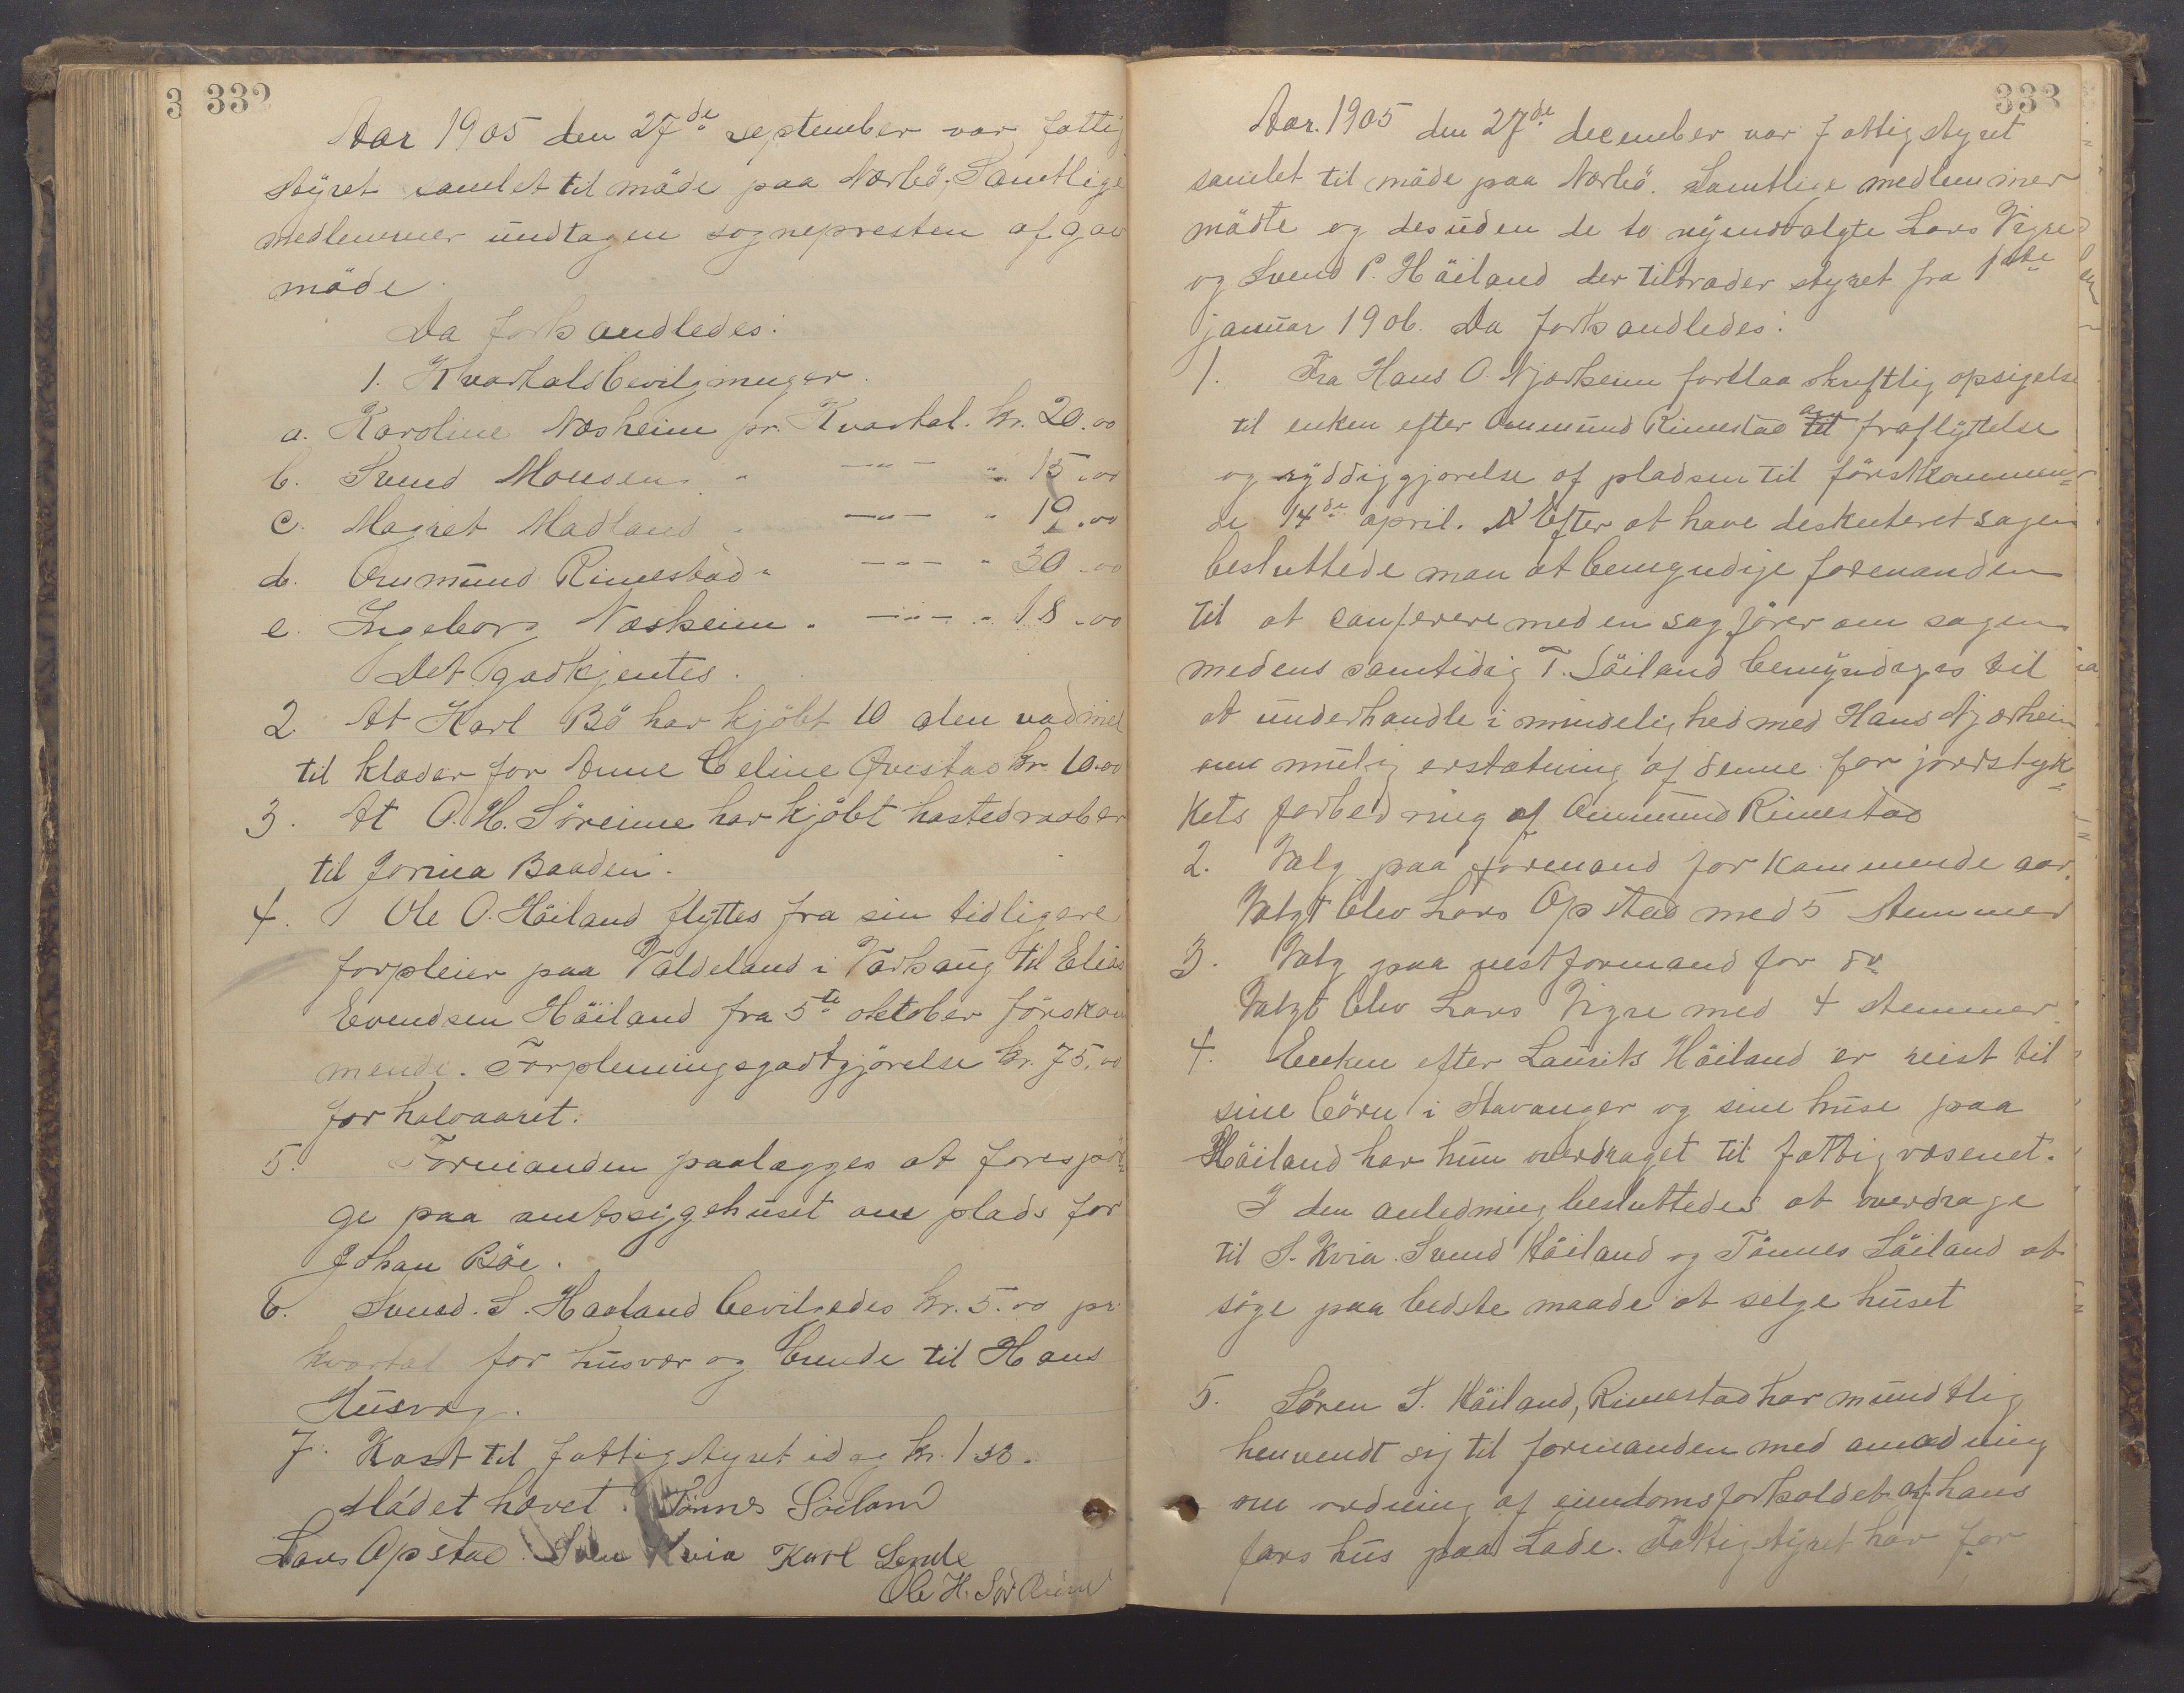 3 332
Aar 1905 den 27de september var fattig
styret samlet til möde paa Nærbö; Samtlige
medlemmer undtagen sognepresten af gav
möde.
Da forhandledes:
1. Kvartalsbevilgninger.
a. Karoline Næsheim pr. Kvartal. kr. 20.00
b. Svend Monsen " —"— " 15.00
c. Magret Madland " —"— " 19.00
d. Ommund Rimestad " —"— " 30.00
e. Ingeborg Næsheim " —"— " 18.00
Det godkjentes.
2 At Karl Bö har kjöbt 10 alen vadmel
til klæder for Anne Celine Qvestad kr. 10.00
3. At O. H. Söreime har kjöbt hostedraaber
til Jorina Baaden.
4. Ole O. Höiland flyttes fra sin tidligere
forpleier paa Valdeland i Varhaug til Elias
Evendsen Höiland fra 5te oktober förskom
mende. Forpleiningsgodtgjörelse kr. 75.00
for halvaaret.
5. Formanden paalægges at forespör=
ge paa amtssygehuset om plads for
Johan Böe.
6. Svend. S. Haaland bevilgedes kr. 5.00 pr
kvartal for husvær og brende til Hans
Husvæg.
7. Kost til fattigstyret idag kr. 1 30.
Mödet hævet. Tönnes Söiland
Lars Opstad. Sven Kvia Karl Lende
Ole H. Sör Reime
333
Aar. 1905 den 27de december var fattigstyret
samlet til möde paa Nærbö. Samtlige medlemmer
mödte og desuden de to nyindvalgte Lars Vigre
og Svend P. Höiland der tiltræder styret fra 1ste
januar 1906. Da forhandledes:
1. Fra Hans O. Njærheim forelaa skriftlig opsigelse
til enken efter Ommund Rimestad til fraflyttelse
og ryddiggjørelse af pladsen til förstkommen=
de 14de april. Efter at have deskuteret sagen
besluttede man at bemyndige formanden
til at conferere med en sagförer om sagen
medens samtidig T. Söiland bemyndiges til
at underhandle i mindelighed med Hans Njærheim
om mulig erstatning af denne for jordstyk=
kets forbedring af Ommund Rimestad
2. Valg paa formand for kommende aar.
Valgt blev Lars Opstad med 5 stemmer
3. Valg paa nestformand for do
Valgt blev Lars Vigre med 4 stemmer.
4. Enken efter Laurits Höiland er reist til
sine börn i Stavanger og sine huse paa
Höiland har hun overdraget til fattigvæsenet.
I den anledning besluttedes at overdrage
til S. Kvia. Svend Höiland og Tönnes Söiland at
söge paa bedste maade at selge huset
5. Sören S. Höiland, Rimestad har mundtlig
henvendt sig til formanden med anmodning
om ordning af eiendomsforholdet af hans
fars hus paa Lade. Fattigstyret har for